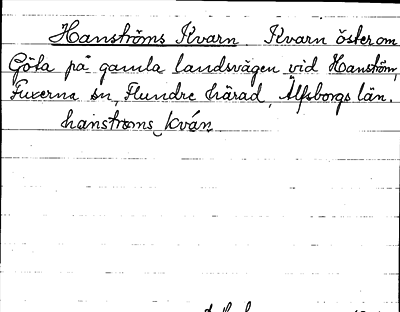 Hanströms Kvarn Kvarn öster om
Göta på gamla landsvägen vid Hanström,
Fuxerna sn, Flundre härad, Älfsborgs län.
hanstroms kván